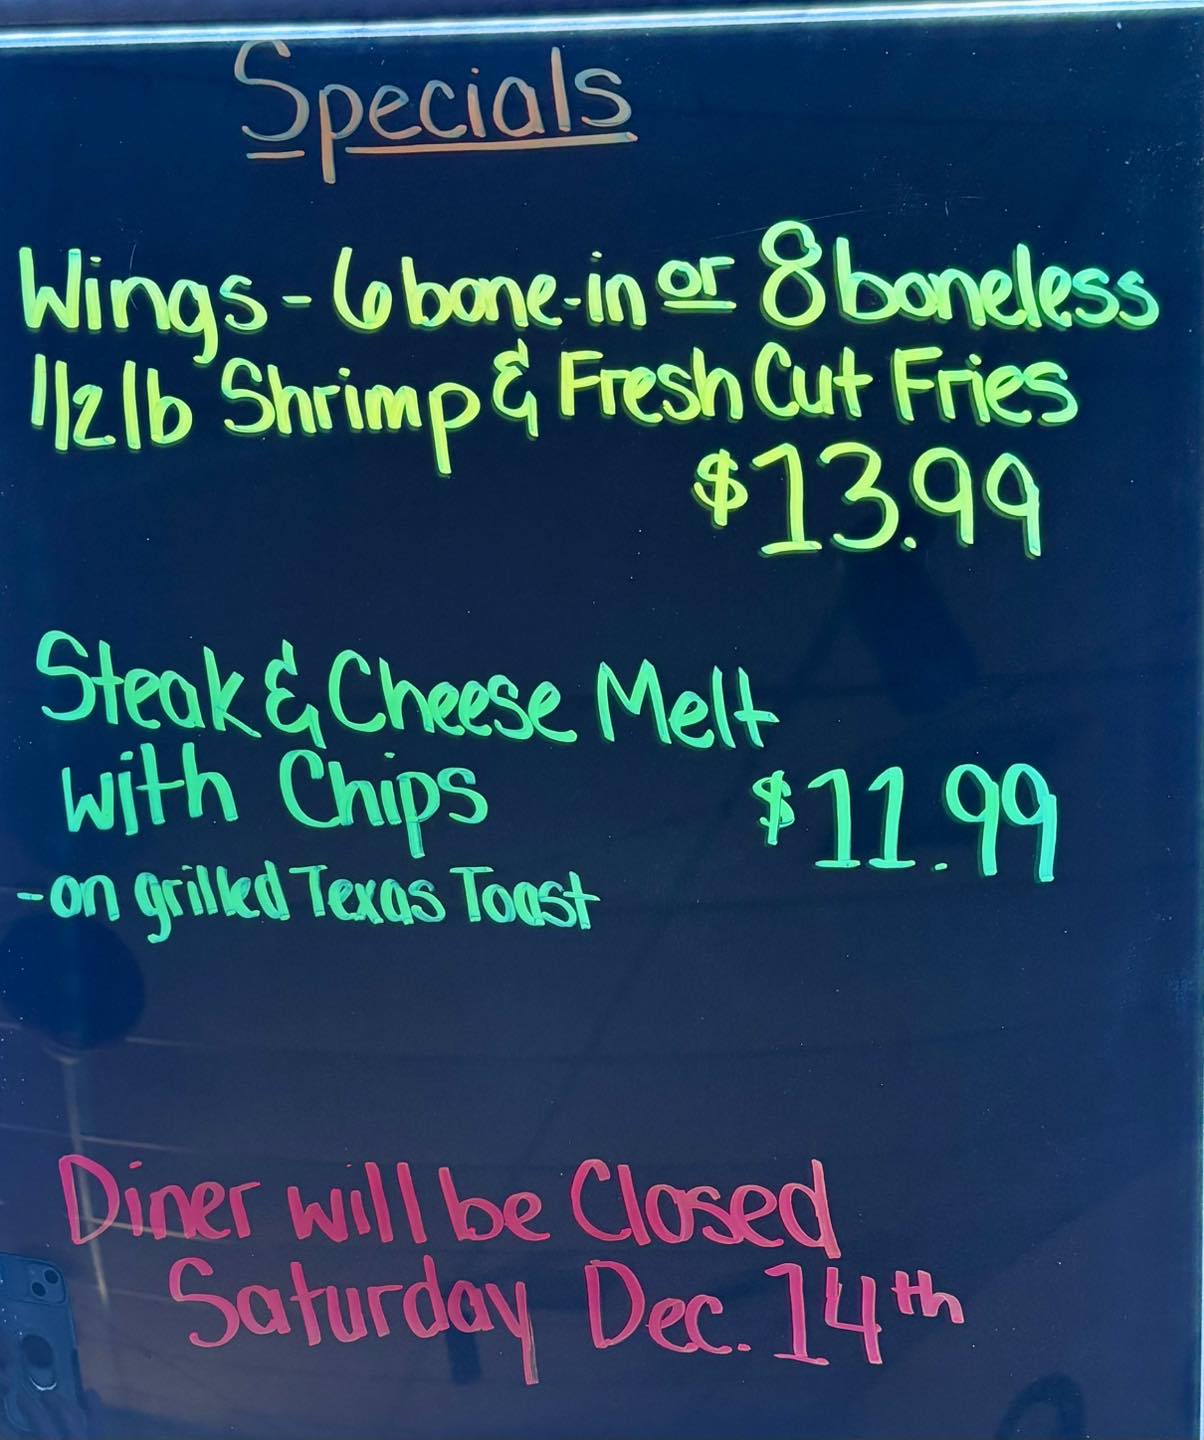 Specials
Wings - 6 bone-in or 8 boneless
1/2 lb Shrimp & Fresh Cut Fries
$13.99
Steak & Cheese Melt
with Chips $11.99
- on grilled Texas Toast
Diner will be Closed
Saturday Dec. 14th